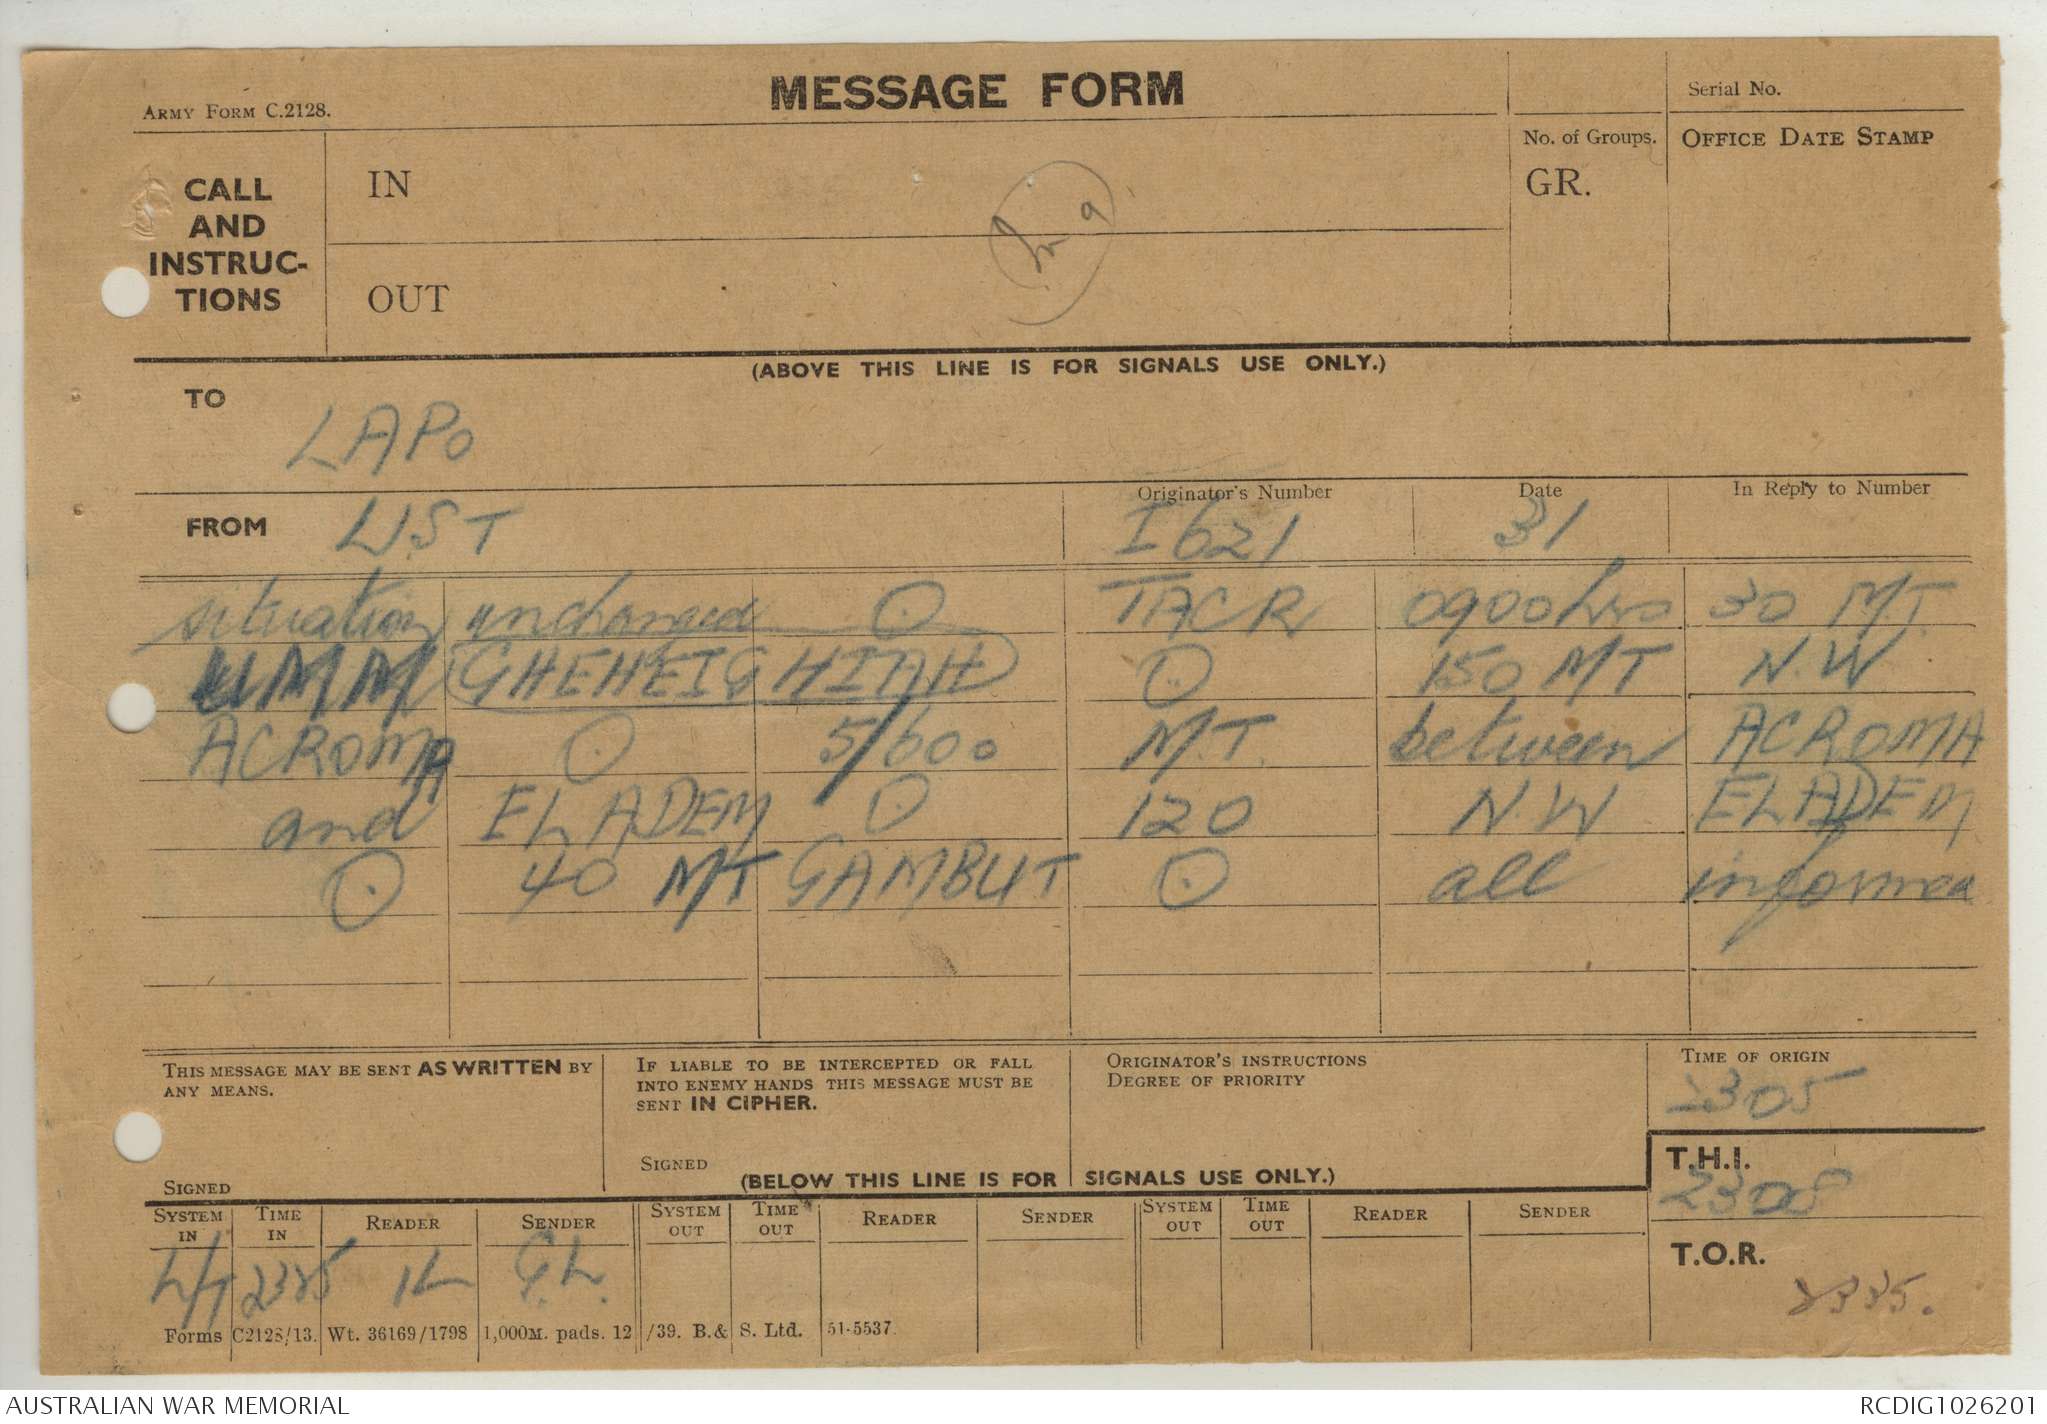 MESSAGE FORM
ARMY FORM C.2128.
Serial No.
CALL AND INSTRUC-TIONS
IN
No. of Groups.
GR.
OFFICE DATE STAMP
OUT
(ABOVE THIS LINE IS FOR SIGNALS USE ONLY.)
TO
LAPO
Originator's Number Date In Reply to Number
FROM LIST I 621 31
situation unchanged O TACR 0900hrs 30 M.T.
UMM GHEHEIGHIAH O 150 MT N.W
ACROMA O 5/600 M.T. between ACROMA
and EL ADEM O 120 N.W EL ADEM
O 40 MT GAMBUT O all informed
THIS MESSAGE MAY BE SENT AS WRITTEN BY ANY MEANS.
SIGNED
IF LIABLE TO BE INTERCEPTED OR FALL INTO ENEMY HANDS THIS MESSAGE MUST BE SENT IN CIPHER.
SIGNED
ORIGINATOR'S INSTRUCTIONS
DEGREE OF PRIORITY
TIME OF ORIGIN
2305
(BELOW THIS LINE IS FOR SIGNALS USE ONLY.)
T.H.I.
2308
SYSTEM IN TIME IN READER SENDER SYSTEM OUT TIME OUT READER SENDER SYSTEM OUT TIME OUT READER SENDER
L/T G.L.
T.O.R.
2335.
Forms C2128/13. Wt. 36169/1798 1,000M. pads. 12/39. B.& S. Ltd. 51-5537.
AUSTRALIAN WAR MEMORIAL
RCDIG1026201